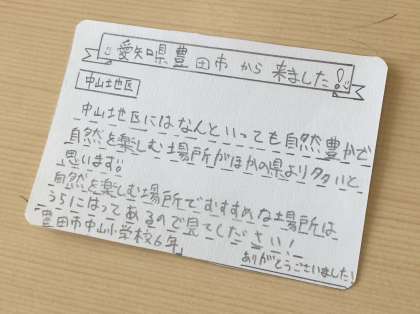 愛知県豊田市から来ました!
中山地区
中山地区にはなんといっても自然豊かで
自然を楽しむ場所がほかの県より多いと
思います。
自然を楽しむ場所でおすすめな場所は
うらにはってあるので見てしださい!
豊田市中山小学校6年」
ありがとうございました!